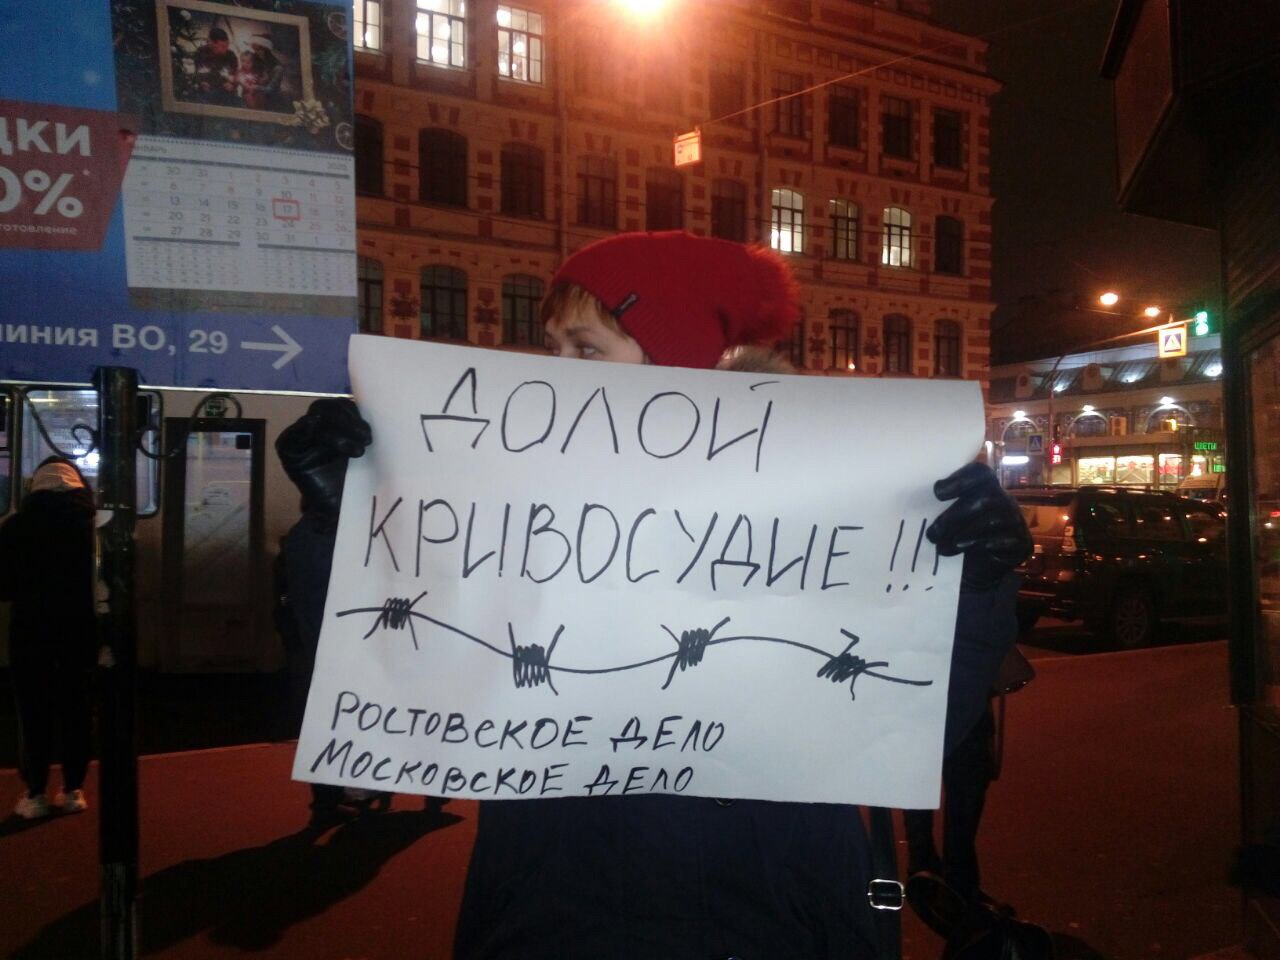 ДКИ
0%*
ЗГОТОВЛЕНИЕ
ЯНВАРЬ 2020
30 31 1 2 3 4 5
6 7 8 9 10 11 12
13 14 15 16 17 18 19
20 21 22 23 24 25 26
27 28 29 30 31 1 2
ЛИНИЯ ВО, 29
ДОЛОЙ
КРИВОСУДИЕ!!!
РОСТОВСКОЕ ДЕЛО
МОСКОВСКОЕ ДЕЛО
ЦВЕТЫ